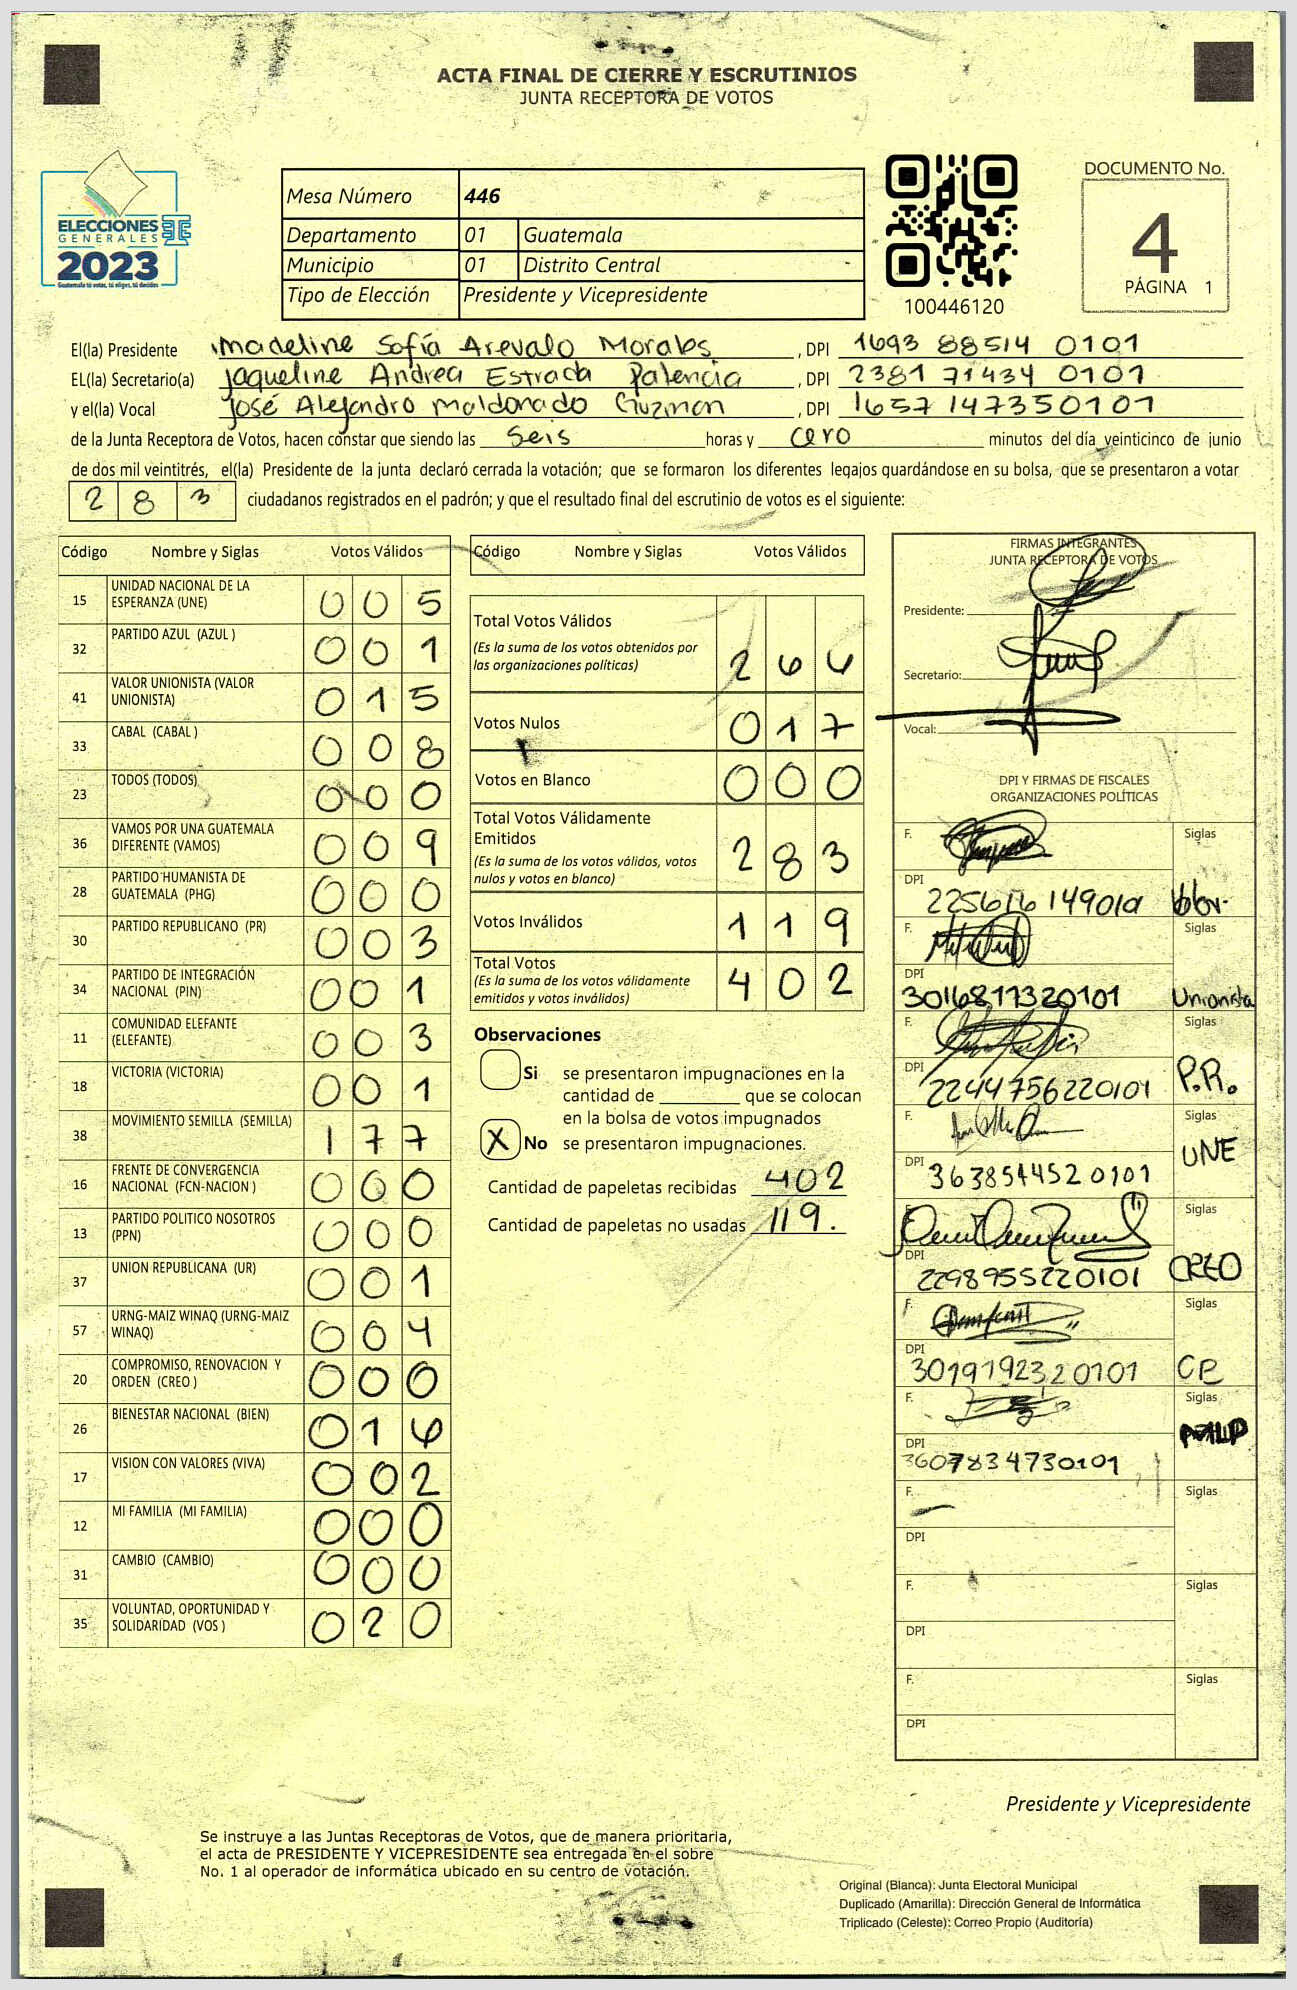 ACTA FINAL DE CIERRE Y ESCRUTINIOS
JUNTA RECEPTORA DE VOTOS
ELECCIONES
GENERALES
2023
Guatemala tú votas, tú eliges, tú decides
Mesa Número 446
Departamento 01 Guatemala
Municipio 01 Distrito Central
Tipo de Elección Presidente y Vicepresidente
100446120
DOCUMENTO No.
4
PÁGINA 1
El(la) Presidente Madeline Sofía Arevalo Morales, DPI 1693 88514 0101
EL(la) Secretario(a) Jaqueline Andrea Estrada Palencia, DPI 2381 71434 0101
y el(la) Vocal José Alejandro Maldonado Guzman, DPI 1657 147350101
de la Junta Receptora de Votos, hacen constar que siendo las seis horas y cero minutos del día veinticinco de junio
de dos mil veintitrés, el(la) Presidente de la junta declaró cerrada la votación; que se formaron los diferentes legajos guardándose en su bolsa, que se presentaron a votar
283 ciudadanos registrados en el padrón; y que el resultado final del escrutinio de votos es el siguiente:
Código Nombre y Siglas Votos Válidos
15 UNIDAD NACIONAL DE LA ESPERANZA (UNE) 005
32 PARTIDO AZUL (AZUL ) 001
41 VALOR UNIONISTA (VALOR UNIONISTA) 015
33 CABAL (CABAL ) 008
23 TODOS (TODOS) 000
36 VAMOS POR UNA GUATEMALA DIFERENTE (VAMOS) 009
28 PARTIDO HUMANISTA DE GUATEMALA (PHG) 000
30 PARTIDO REPUBLICANO (PR) 003
34 PARTIDO DE INTEGRACIÓN NACIONAL (PIN) 001
11 COMUNIDAD ELEFANTE (ELEFANTE) 003
18 VICTORIA (VICTORIA) 001
38 MOVIMIENTO SEMILLA (SEMILLA) 177
16 FRENTE DE CONVERGENCIA NACIONAL (FCN-NACION ) 000
13 PARTIDO POLITICO NOSOTROS (PPN) 000
37 UNION REPUBLICANA (UR) 001
57 URNG-MAIZ WINAQ (URNG-MAIZ WINAQ) 004
20 COMPROMISO, RENOVACION Y ORDEN (CREO ) 000
26 BIENESTAR NACIONAL (BIEN) 016
17 VISION CON VALORES (VIVA) 002
12 MI FAMILIA (MI FAMILIA) 000
31 CAMBIO (CAMBIO) 000
35 VOLUNTAD, OPORTUNIDAD Y SOLIDARIDAD (VOS ) 020
Código Nombre y Siglas Votos Válidos
Total Votos Válidos
(Es la suma de los votos obtenidos por
las organizaciones políticas) 266
Votos Nulos 017
Votos en Blanco 000
Total Votos Válidamente
Emitidos
(Es la suma de los votos válidos, votos
nulos y votos en blanco) 283
Votos Inválidos 119
Total Votos
(Es la suma de los votos válidamente
emitidos y votos inválidos) 402
Observaciones
Si se presentaron impugnaciones en la
cantidad de ________ que se colocan
en la bolsa de votos impugnados
X No se presentaron impugnaciones.
Cantidad de papeletas recibidas 402
Cantidad de papeletas no usadas 119.
FIRMAS INTEGRANTES
JUNTA RECEPTORA DE VOTOS
Presidente:
Secretario:
Vocal:
DPI Y FIRMAS DE FISCALES
ORGANIZACIONES POLÍTICAS
F. Siglas
DPI Valor
F. Siglas
DPI 3016817320101 Unionista
F. Siglas
DPI 2244756220101 P.R.
F. Siglas
DPI 3638514520101 UNE
F. Siglas
DPI 2298955220101 CREO
F. Siglas
DPI 3019192320101
F. Siglas
DPI 3607834730101
F. Siglas
DPI
F. Siglas
DPI
F. Siglas
DPI
Presidente y Vicepresidente
Se instruye a las Juntas Receptoras de Votos, que de manera prioritaria,
el acta de PRESIDENTE Y VICEPRESIDENTE sea entregada en el sobre
No. 1 al operador de informática ubicado en su centro de votación.
Original (Blanca): Junta Electoral Municipal
Duplicado (Amarilla): Dirección General de Informática
Triplicado (Celeste): Correo Propio (Auditoría)